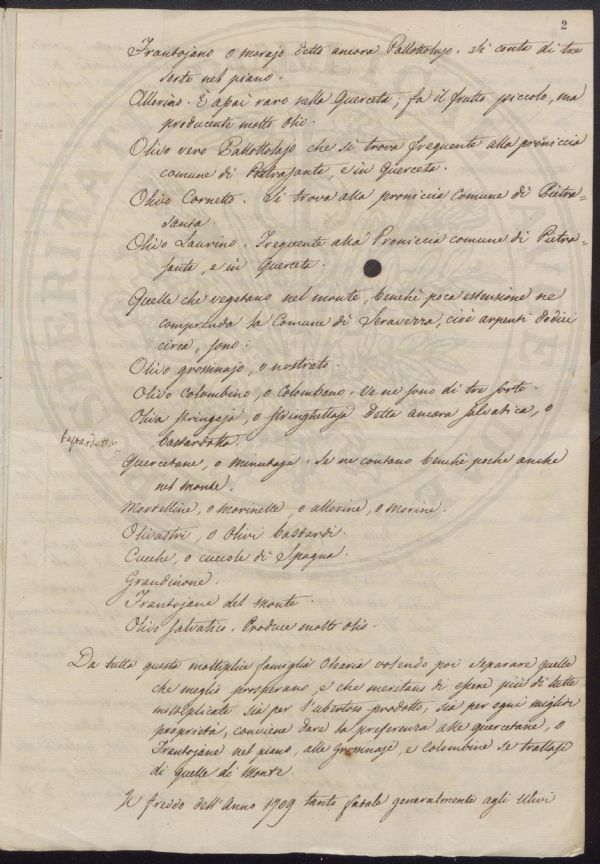 2
Frantojano o morajo detto ancora Pallottolajo. Si conta di tre
sorte nel piano.
Allorino. È assai raro nella Querceta, fa il frutto piccolo, ma
producente molto olio.
Olivo vero Pallottolajo che si trova frequente alla proniccia
comune di Pietrasanta, e in Querceta.
Olivo Cornetto. Si trova alla proniccia Comune di Pietra=
santa.
Olivo Laurino. Frequente alla Proniccia comune di Pietra=
santa, e in Querceta.
Quelle che vegetano nel monte, benchè poca estensione ne
comprenda la Comune di Seravezza, cioè arpenti dodici
circa, sono:
Olivo grossinajo, o nostrato.
Olivo Colombino, o Colombano. Ve ne sono di tre sorte.
Oliva stringaja, o stringhettaja detta ancora salvatica, o
bastardotta.
Quercetane, o minutaja. Se ne contano benchè poche anche
nel monte.
Mortelline, o morinelle, o allorine, o morine.
Olivastri, o Olivi bastardi.
Cucche, o cuccole di Spagna.
Grandinone.
Frantojane del monte.
Olivo salvatico. Produce molto olio.
Da tutta questa moltiplice famiglia Olearia volendo poi separare quelle
che meglio prosperano, e che meritano di essere più di tutte
moltiplicate sia per l'ubertoso prodotto, sia per ogni miglior
proprietà, conviene dare la preferenza alle quercetane, o
Frantojane nel piano, alle Grossinaje, e colombine se trattasi
di quelle di Monte.
Il freddo dell'Anno 1709 tanto fatale generalmente agli Ulivi